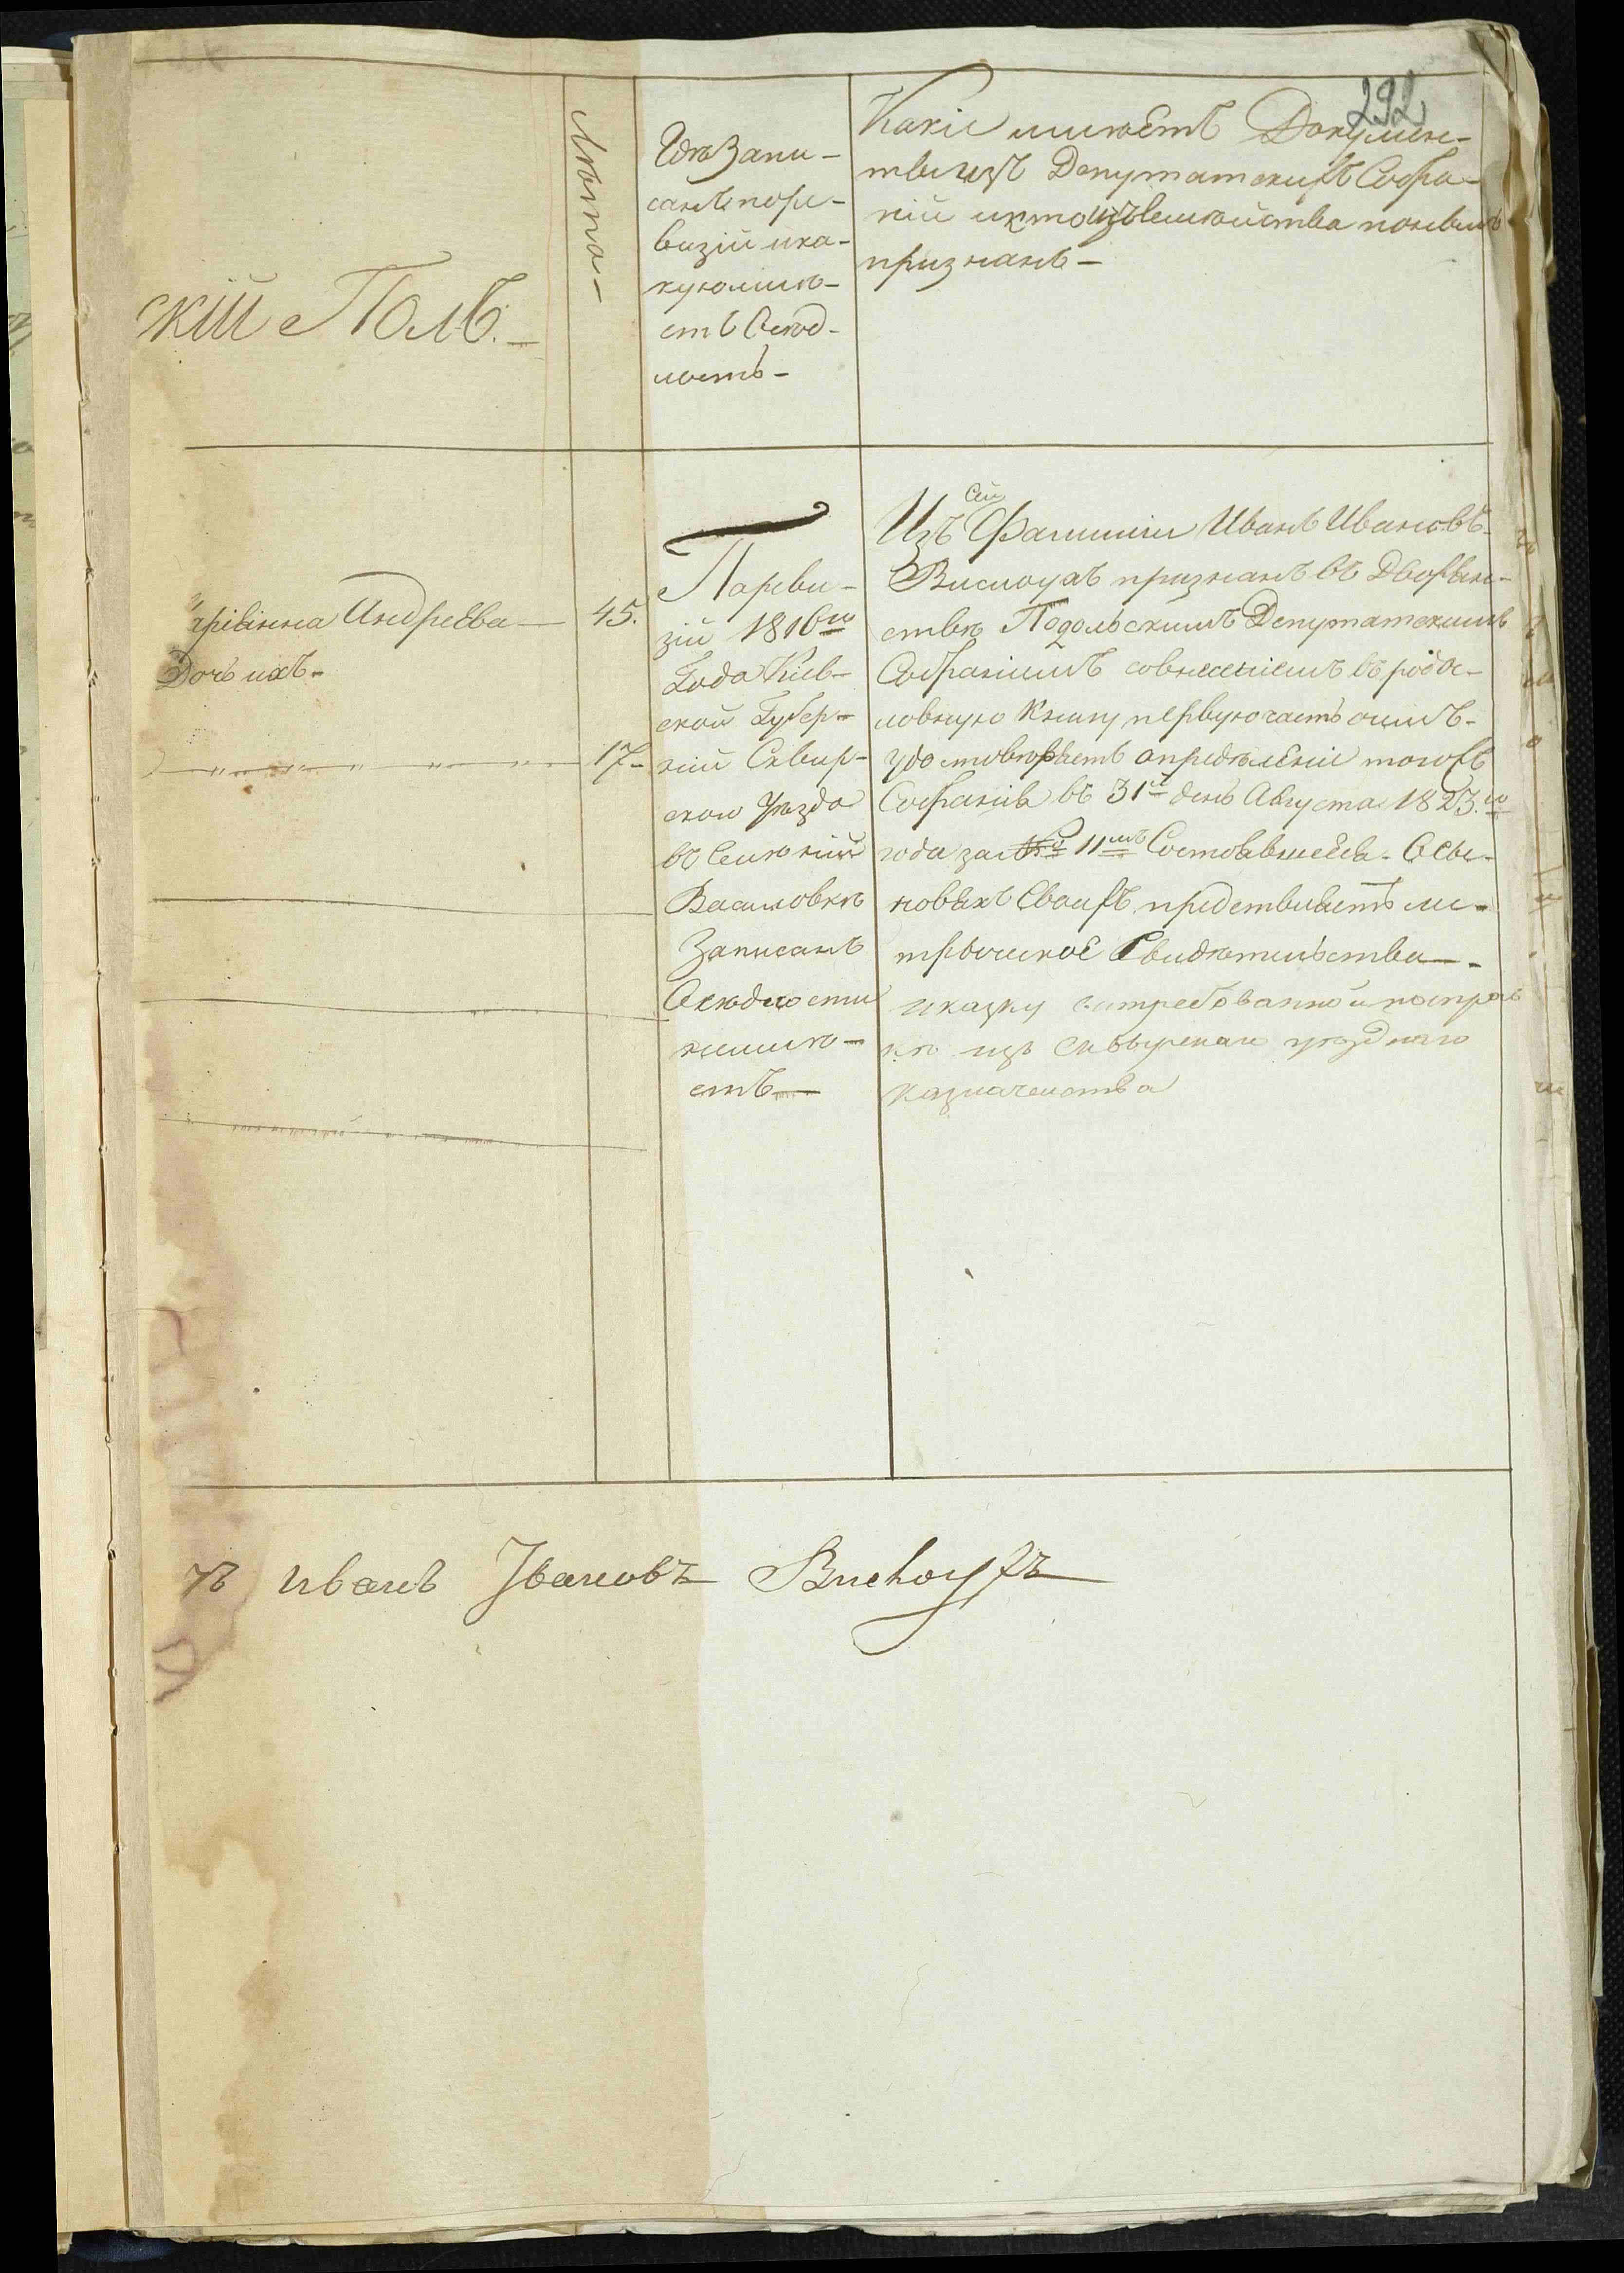 292
скій Полъ.
Лѣта
Гдѣ Запи-
санъ по ре-
визіи и ка-
кую имѣ-
етъ Осѣд-
лость
Какіе имѣетъ Докумен-
ты изъ Депутатскихъ Собра-
ній и кто изъ Семейства по нимъ
признанъ
Андреева 45.
Дочь ихъ
17
По реви-
зіи 1816го
Года Кіев-
ской Губер-
ніи Сквир-
ского Уѣзда
въ Селеніи
Василовкѣ
Записанъ
Осѣдлости
не имѣ-
етъ
Изъ Сей Фамиліи Иванъ Ивановъ
Висмоухъ признанъ въ Дворян-
ствѣ Подольскимъ Депутатскимъ
Собраніемъ со внесеніемъ въ родос-
ловную Книгу первую часть о чемъ
удостовѣряетъ опредѣленіе того жъ
Собранія въ 31й день Августа 1823го
года за 11мъ Состоявшееся. О Сы-
новьяхъ Своихъ представляетъ ме-
трическое Свидѣтельства
и сказку истребованной по справ
кѣ изъ Сквирскаго уѣзднаго
казначейства
Иванъ Ивановъ